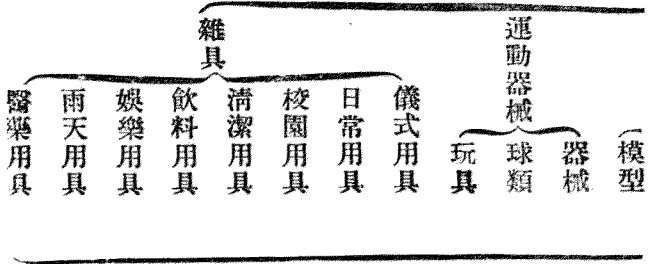 模型
運動器械
器械
球類
玩具
雜具
儀式用具
日常用具
校園用具
清潔用具
飲料用具
娛樂用具
雨天用具
醫藥用具